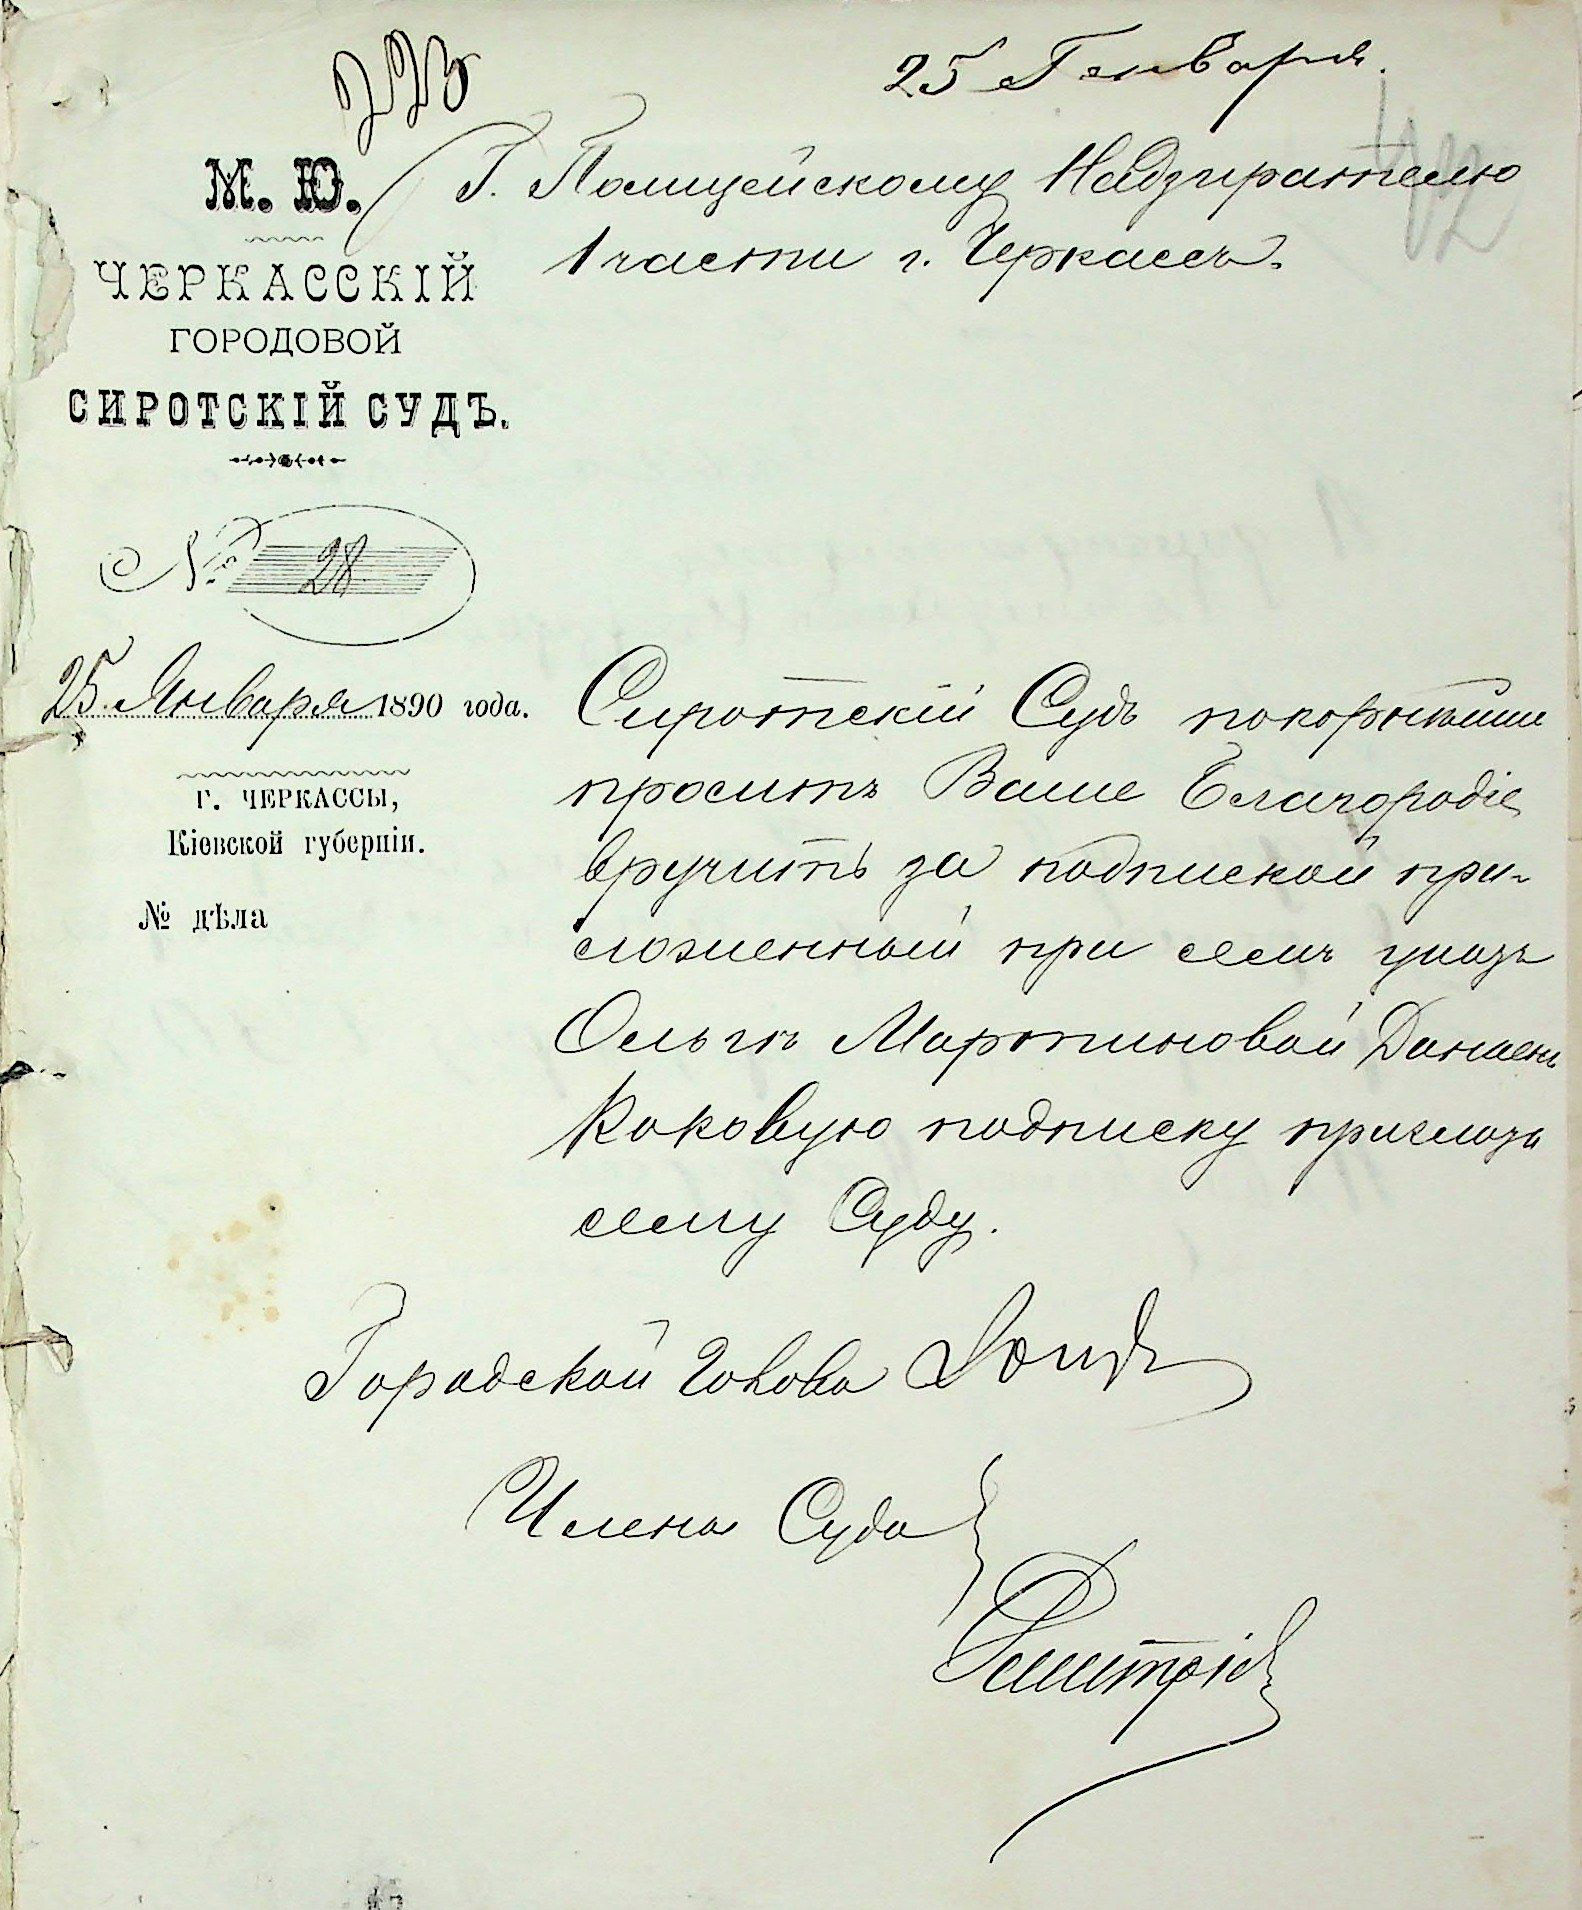 223
25 Генваря.
Г. Полицейскому Надзирателю
1 части г. Черкассъ.
М. Ю.
ЧЕРКАССКІЙ
ГОРОДОВОЙ
СИРОТСКІЙ СУДЪ.
№ 28
25 Января 1890 года.
Г. ЧЕРКАССЫ,
Кіевской губерніи.
№ дѣла
Сиротскій Судъ покорнѣйше
проситъ Ваше Благородіе
вручить за подпиской при-
ложенный при семъ указъ
Ольгѣ Мартиновой
Каковую подписку
сему Суду.
Городской Голова
Члена Суда